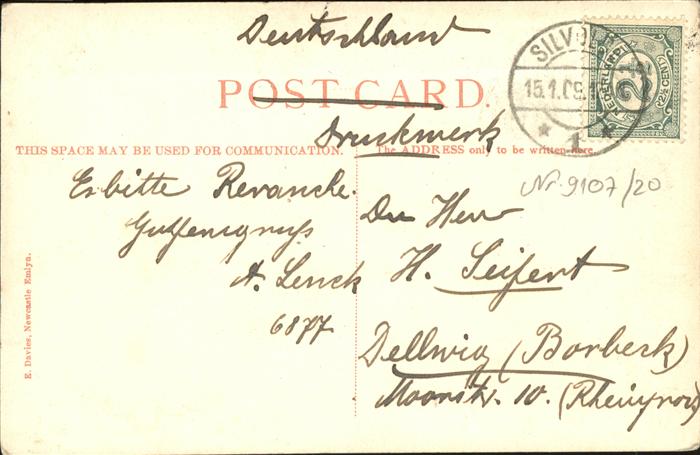 Deutschland
SILVOLDE
15.1.09.1
1
NEDERLAND
2½
2½ CENT
POST CARD.
Druckwerk
THIS SPACE MAY BE USED FOR COMMUNICATION.
The ADDRESS only to be written here.
Nr. 9107/20
Erbitte Revanche.
A. Lenck
6877
Herrn
H. Seifert
Dellwig (Borbeck)
Moorstr. 10. (Rheinprov)
E. Davies, Newcastle Emlyn.